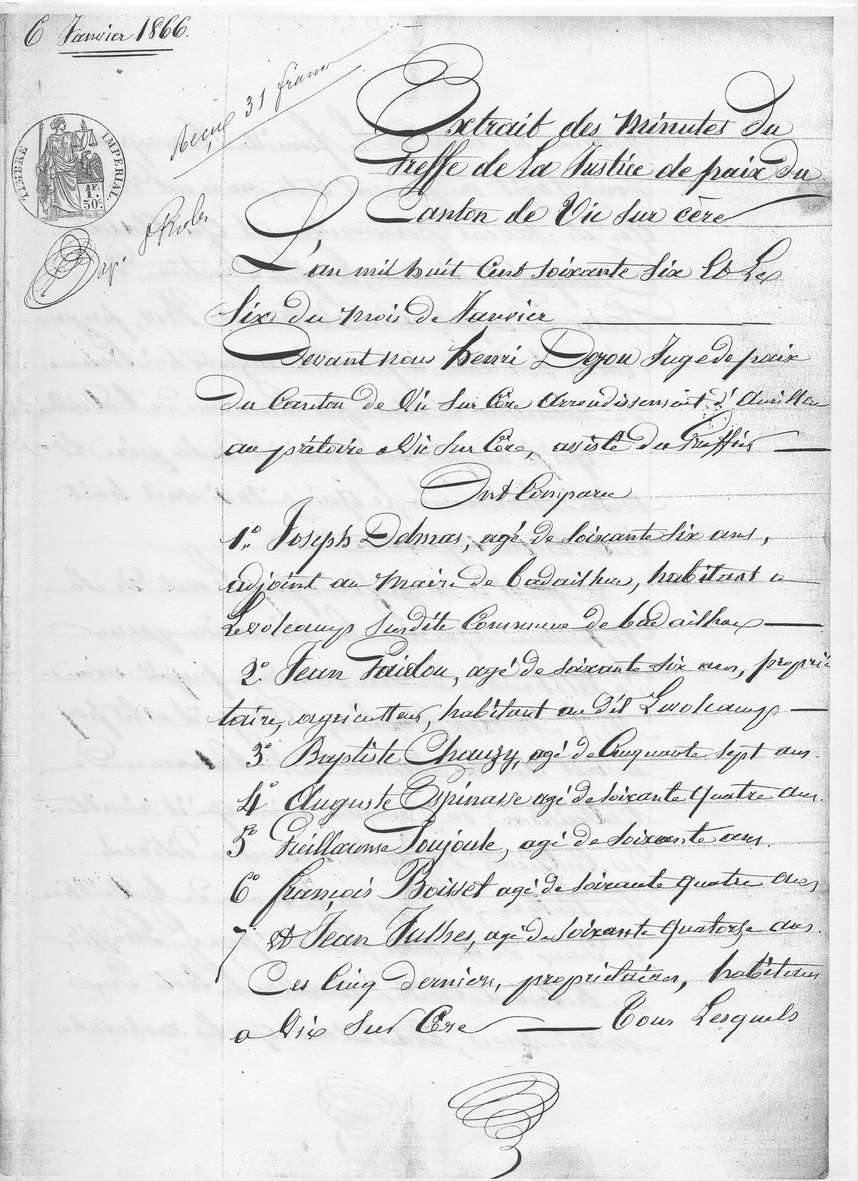 6 Janvier 1866.
Reçu 31 francs
TIMBRE IMPERIAL
1F.
50c.
Extrait des Minutes Du
Greffe de La Justice de paix du
Canton de Vic sur cère
L'an mil huit Cent soixante six Et Le
Six du mois de Janvier
Devant nous henri Dozou Juge de paix
du Canton de Vic sur Cère arrondissement d'Aurillac
au prétoire a Vic sur Cère, assisté du Greffier
Ont Comparu
1.° Joseph Delmas, agé de soixante six ans,
adjoint au maire de badailhac, habitant a
Lescolcamp susdite Commune de badailhac
2.° Jean Faidou, agé de soixante six ans, proprié
taire, agriculteur, habitant au dit
3.° Baptiste Chauzy, agé de Cinquante sept ans
4° Auguste Espinasse agé de soixante quatre ans.
5° Guillaume Toujoule, agé de soixante ans.
6° françois Boisset agé de soixante quatre ans
7° et Jean Julhes, agé de soixante quatorze ans.
Ces Cinq derniers, propriétaires, habitans
a Vic sur Cère Tous Lesquels